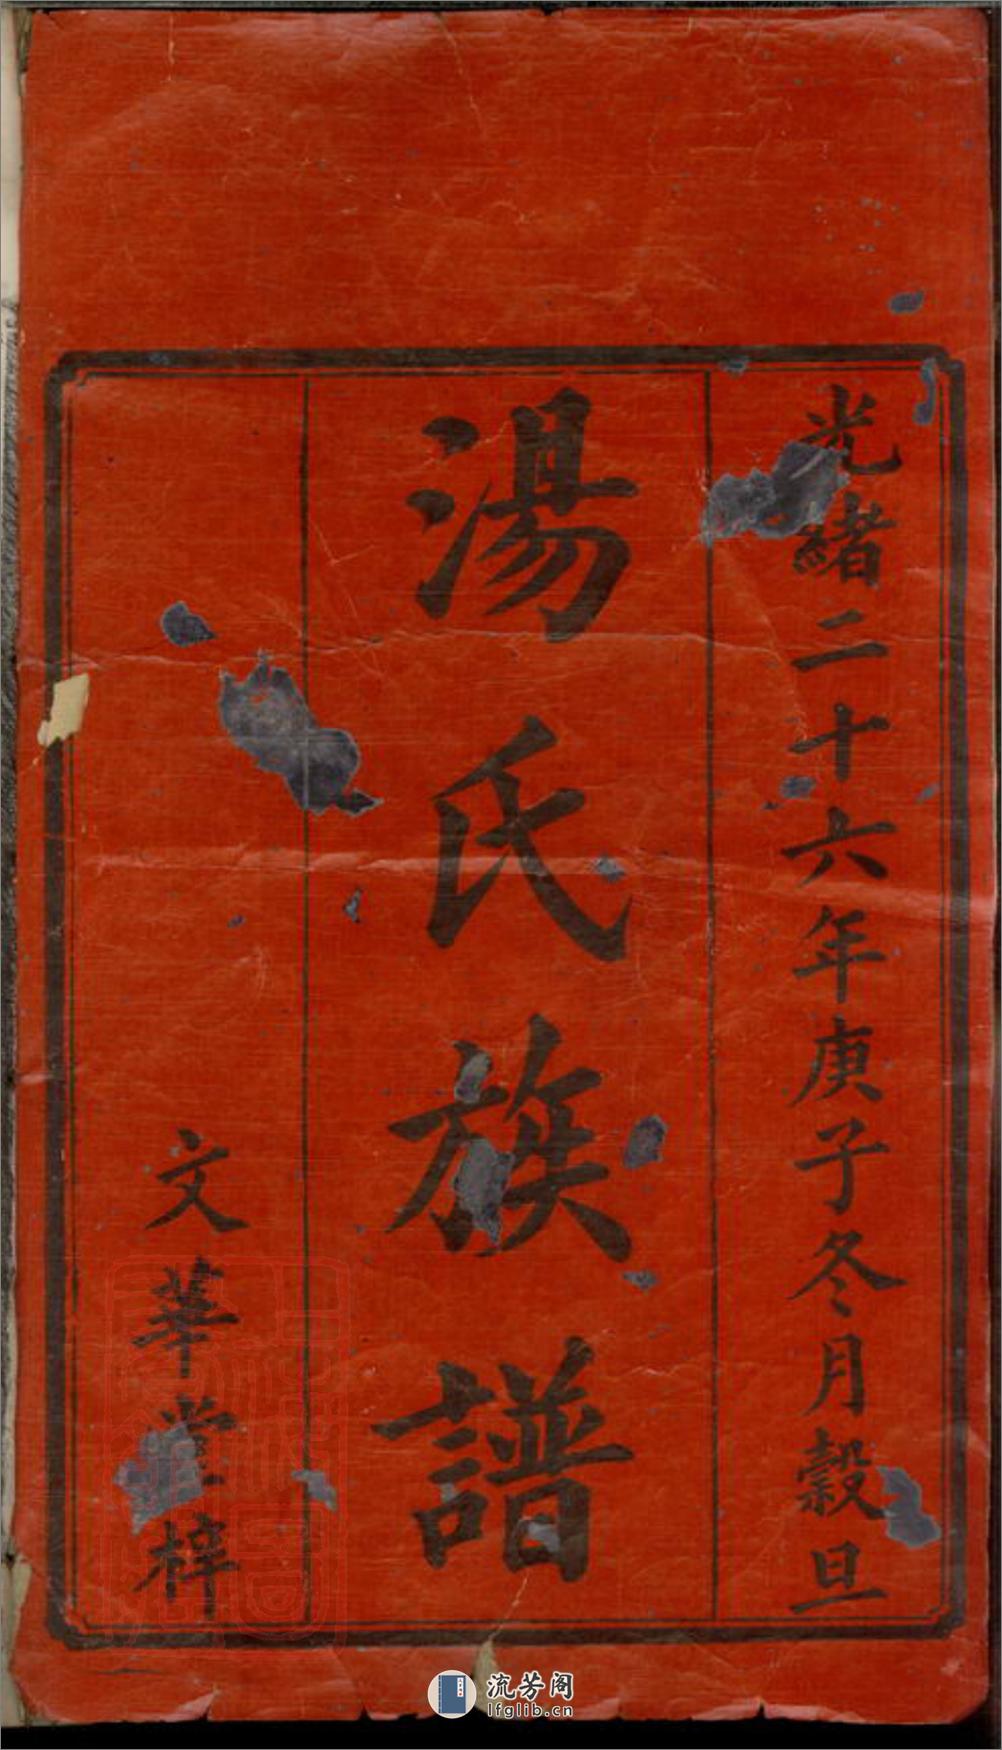 光緒二十六年庚子冬月穀旦
湯氏族譜
文華堂梓
流芳阁
lfglib.cn